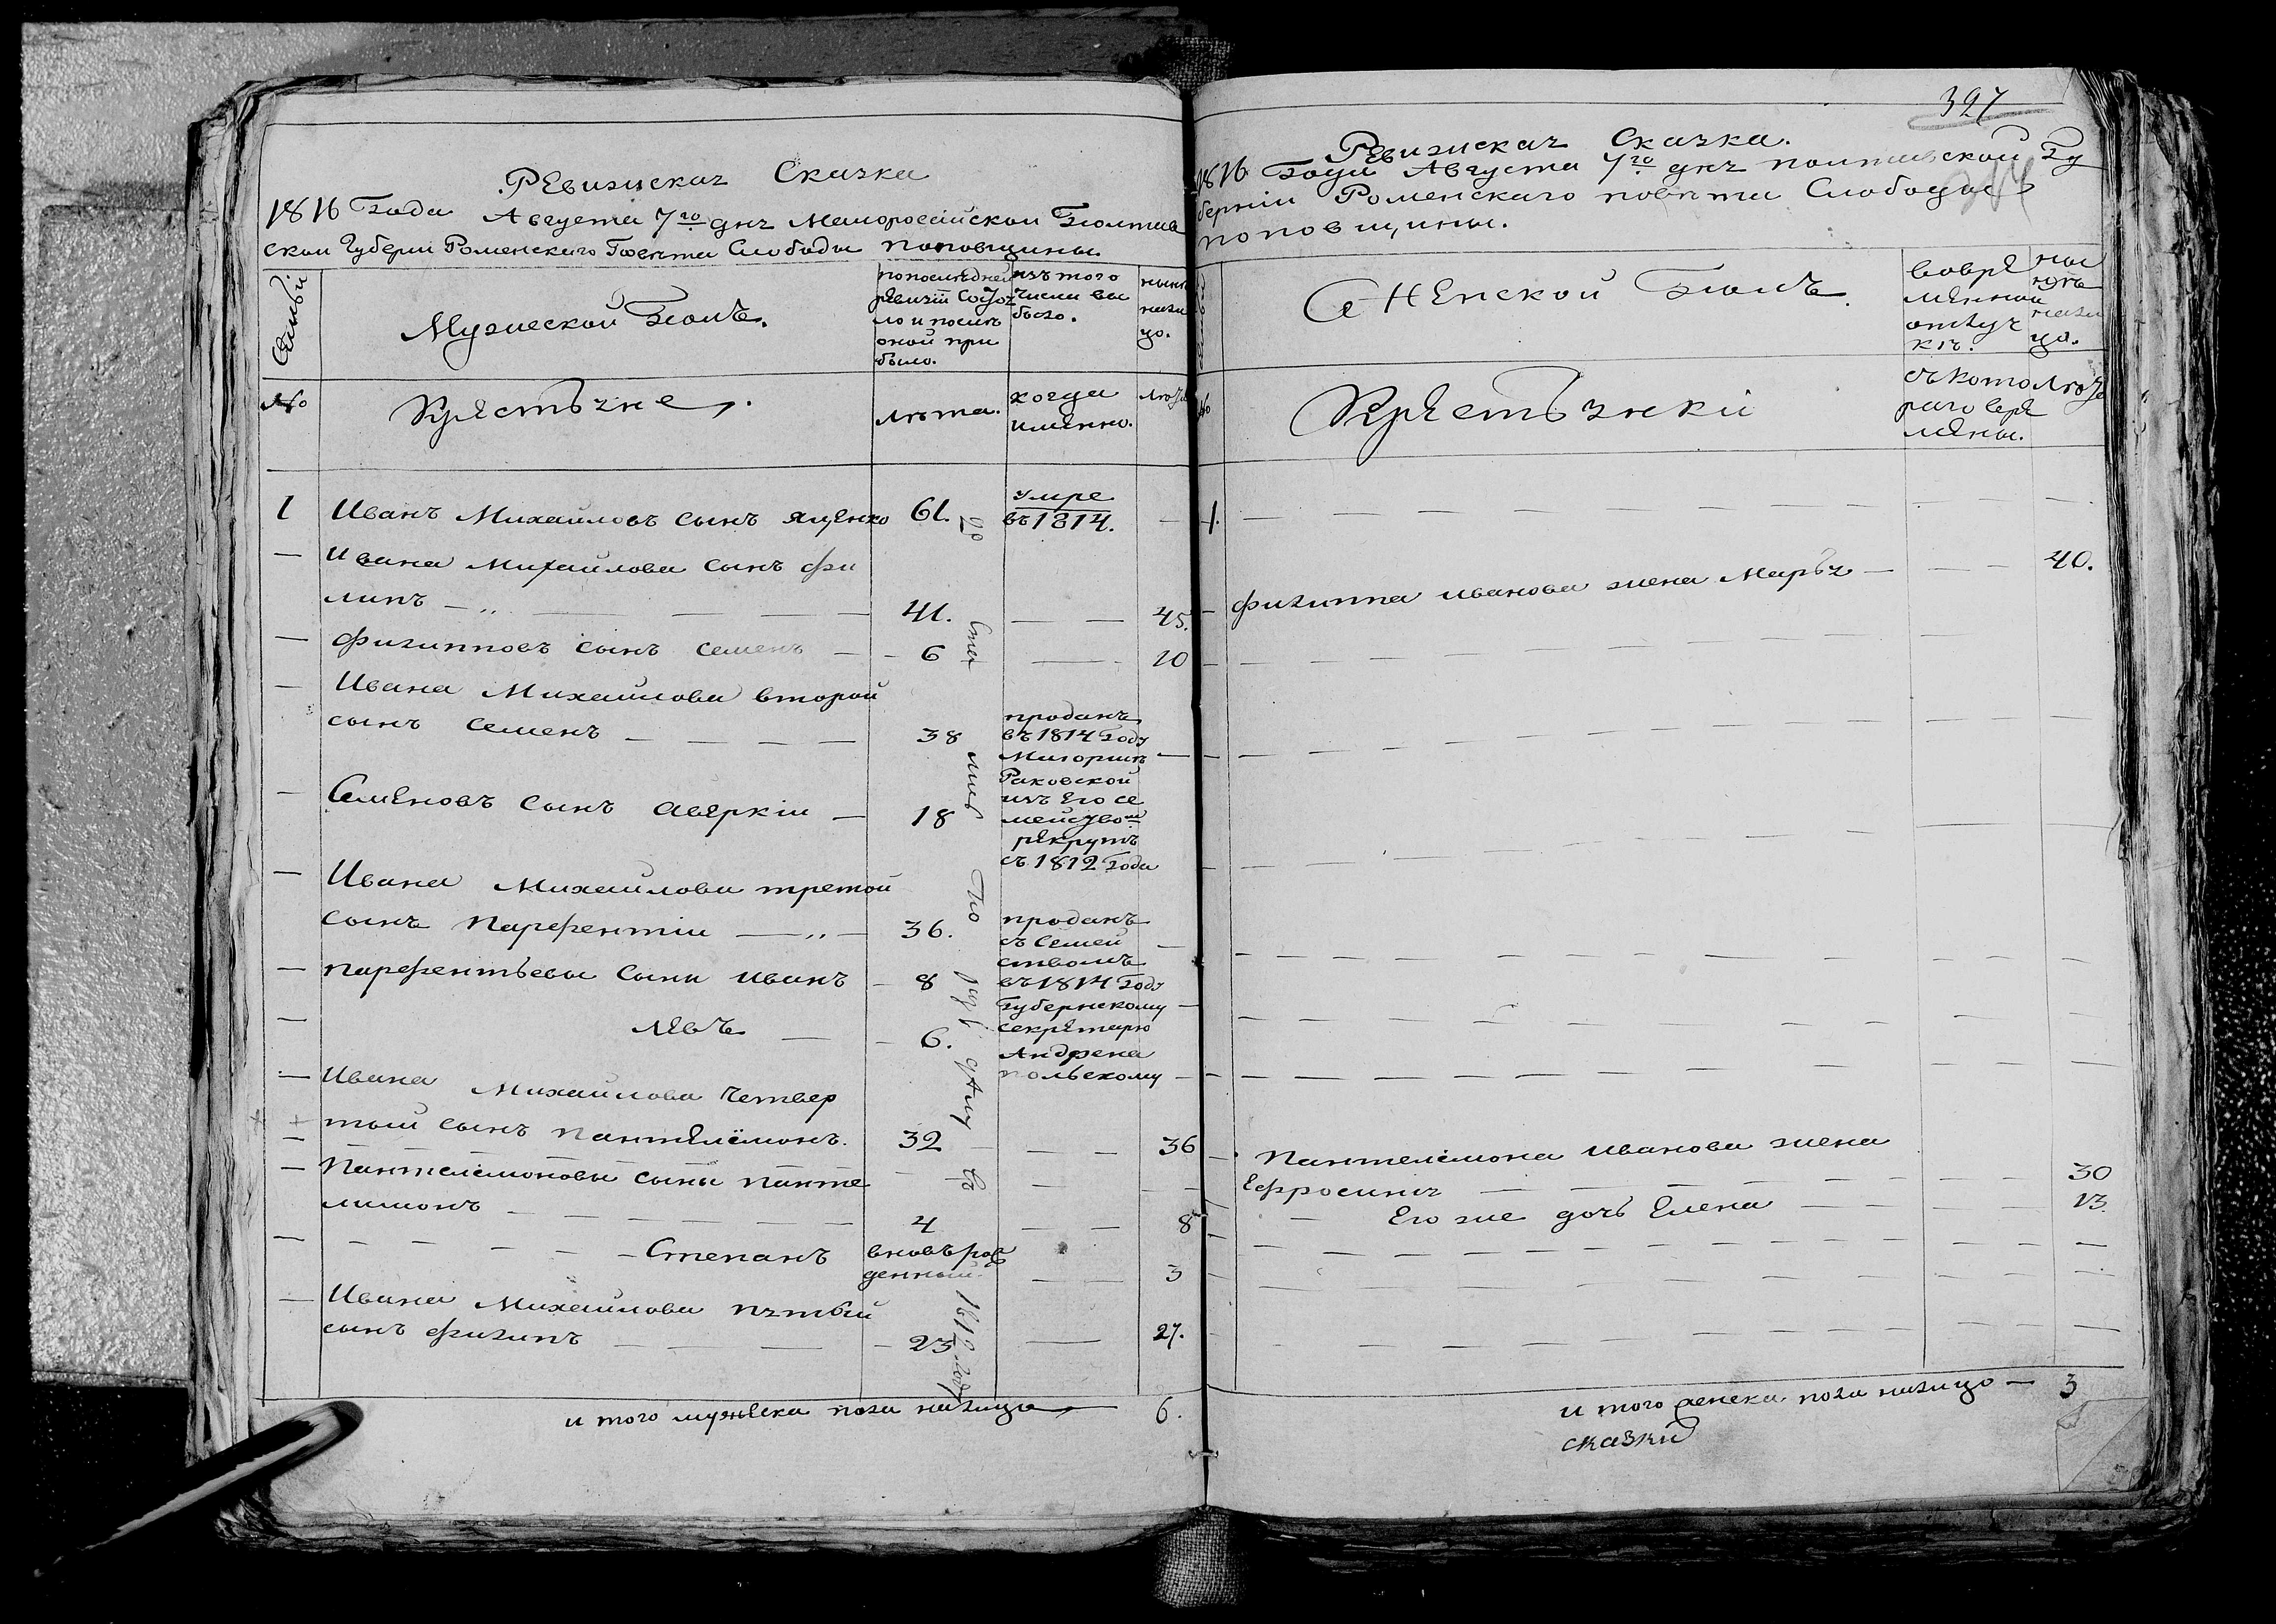 Ревизская Сказка
1816 Года Августа 7го дня Малороссійскои Полтав
скои Губерніи Роменского Повѣта Слободы поповщины
Семьи
Мужескои Полъ.
по последней
ревизіи Состоя
ло и после
оной при
было.
изъ того
числа вы
было.
ныне
нали
цо.
№
Крестьяне,
лѣта.
когда
имЕнно.
лѣта
1 Иванъ Михайловъ сынъ яценко 61. умре
въ 1814. —
— Ивана Михаилова сынъ фи
липъ — 41. — — 45.
— филипповъ сынъ семенъ — 6 — 10
— Ивана Михаилова второй
сынъ семенъ — — — — 38
проданъ
въ 1814 Году
Маіоршѣ
Раковской
изъ Его се
мейство
рекрутъ
съ 1812 Года
— СемЕновъ сынъ аверкіи — 18
— Ивана Михаилова третой
сынъ парфентіи — 36.
проданъ
съ Семей
ствомъ
въ 1814 Году
Губернскому
секретарю
Андрена
польскому
— парфентьевы сыни иванъ — 8
— левъ — 6.
— Ивана Михаилова Четвер
тый сынъ пантелеймонъ. 32 — — 36
— Пантелеімоновы сыны панте
лимонъ — — — — — 4 — — 8
— — — — — Степанъ вновь рож
денный. — — 3
— Ивана Михаилова пятый
сынъ филипъ — — — 23 — 27.
по
раз
дѣлу
въ
1812 году
и того мужеска пола налицо — 6.
327
Ревизская Сказка.
1816 Года Августа 7го дня полтавской Гу
берніи Роменскаго повѣта Слободы
поповщины.
Женской Полъ
вовре
мЕнной
отлуч
кѣ.
ны
нѣ
нали
цо.
№
Крестьянки
съ кото
раго вре
мЕны.
лѣта
1. — — — — — —
— филиппа иванова жена Марья — — — 40.
— Пантелеімона иванова жена
Ефросиния — — — — 30
— Его же дочь Елена — — — 13.
и того женска пола налицо — 3
сказки